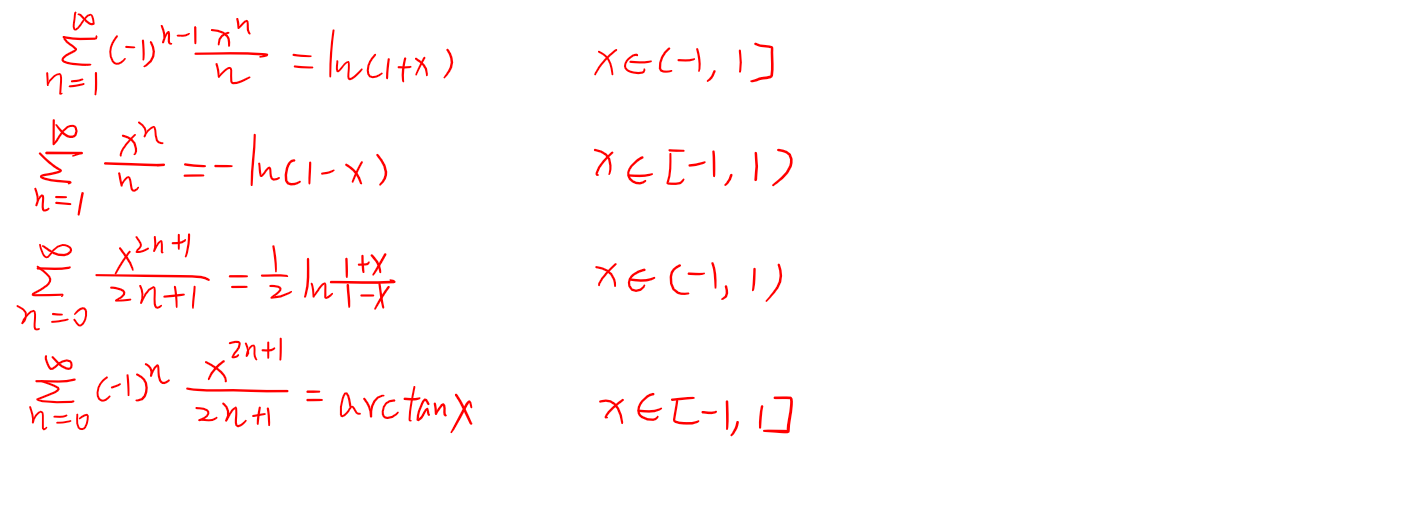 $\sum_{n=1}^{\infty} (-1)^{n-1} \frac{x^n}{n} = \ln(1+x) \quad x \in (-1, 1]$
$\sum_{n=1}^{\infty} \frac{x^n}{n} = -\ln(1-x) \quad x \in [-1, 1)$
$\sum_{n=0}^{\infty} \frac{x^{2n+1}}{2n+1} = \frac{1}{2} \ln \frac{1+x}{1-x} \quad x \in (-1, 1)$
$\sum_{n=0}^{\infty} (-1)^n \frac{x^{2n+1}}{2n+1} = \arctan x \quad x \in [-1, 1]$